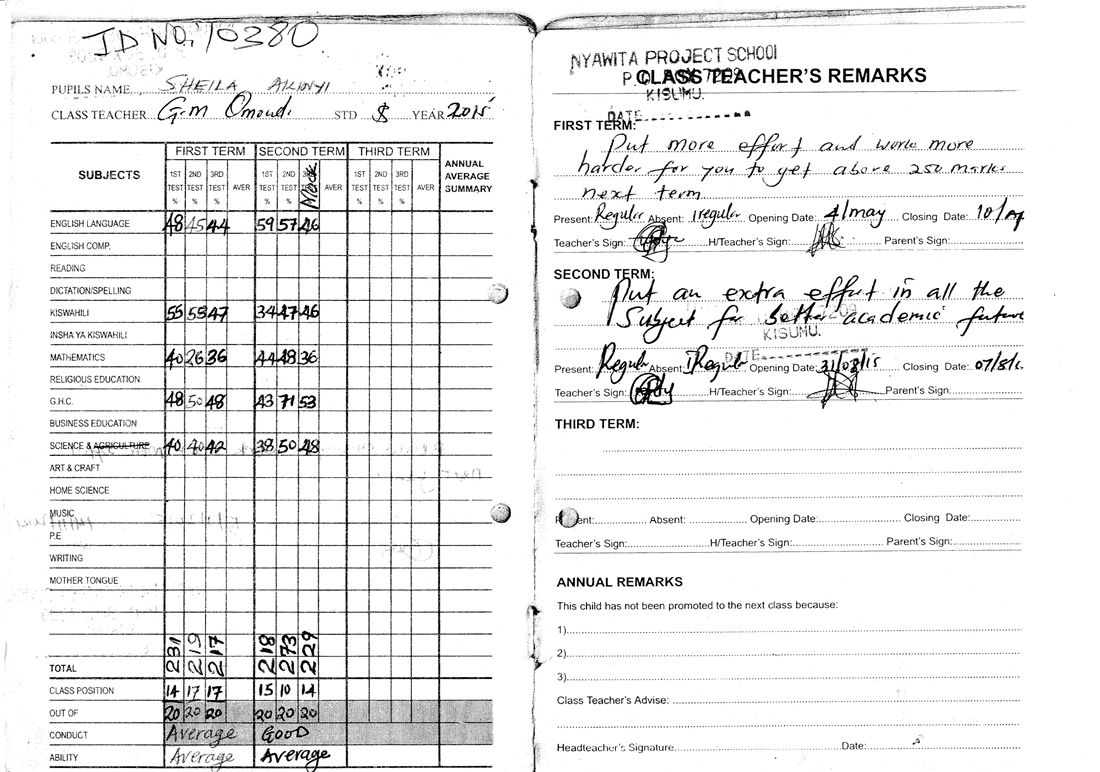 ID NO, 10380
PUPILS NAME SHEILA AKINYI
CLASS TEACHER G.M Omondi STD 8 YEAR 2015
SUBJECTS FIRST TERM SECOND TERM THIRD TERM ANNUAL AVERAGE SUMMARY
1ST TEST % 2ND TEST % 3RD TEST % AVER 1ST TEST % 2ND TEST % Mock AVER 1ST TEST % 2ND TEST % 3RD TEST % AVER
ENGLISH LANGUAGE 48 45 44 59 57 46
ENGLISH COMP.
READING
DICTATION/SPELLING
KISWAHILI 55 58 47 34 47 46
INSHA YA KISWAHILI
MATHEMATICS 40 26 36 44 48 36
RELIGIOUS EDUCATION
G.H.C. 48 50 48 43 71 53
BUSINESS EDUCATION
SCIENCE & AGRICULTURE 40 40 42 38 50 48
ART & CRAFT
HOME SCIENCE
MUSIC
P.E
WRITING
MOTHER TONGUE
TOTAL 231 219 217 218 273 229
CLASS POSITION 14 17 17 15 10 14
OUT OF 20 20 20 20 20 20
CONDUCT Average GOOD
ABILITY Average Average
NYAWITA PROJECT SCHOOL
P.O.
CLASS TEACHER'S REMARKS
KISUMU.
DATE
FIRST TERM:
Put more effort and work more
harder for you to get above 250 marks
next term
Present: Regular Absent: Iregular Opening Date: 4/may Closing Date: 10/
Teacher's Sign: H/Teacher's Sign: Parent's Sign:
SECOND TERM:
Put an extra effort in all the
Subject for better academic future
KISUMU.
DATE
Present: Regular Absent: IRegular Opening Date: 31/08/15 Closing Date: 07/8/
Teacher's Sign: H/Teacher's Sign: Parent's Sign:
THIRD TERM:
Present: Absent: Opening Date: Closing Date:
Teacher's Sign: H/Teacher's Sign: Parent's Sign:
ANNUAL REMARKS
This child has not been promoted to the next class because:
1)
2)
3)
Class Teacher's Advise:
Headteacher's Signature Date: